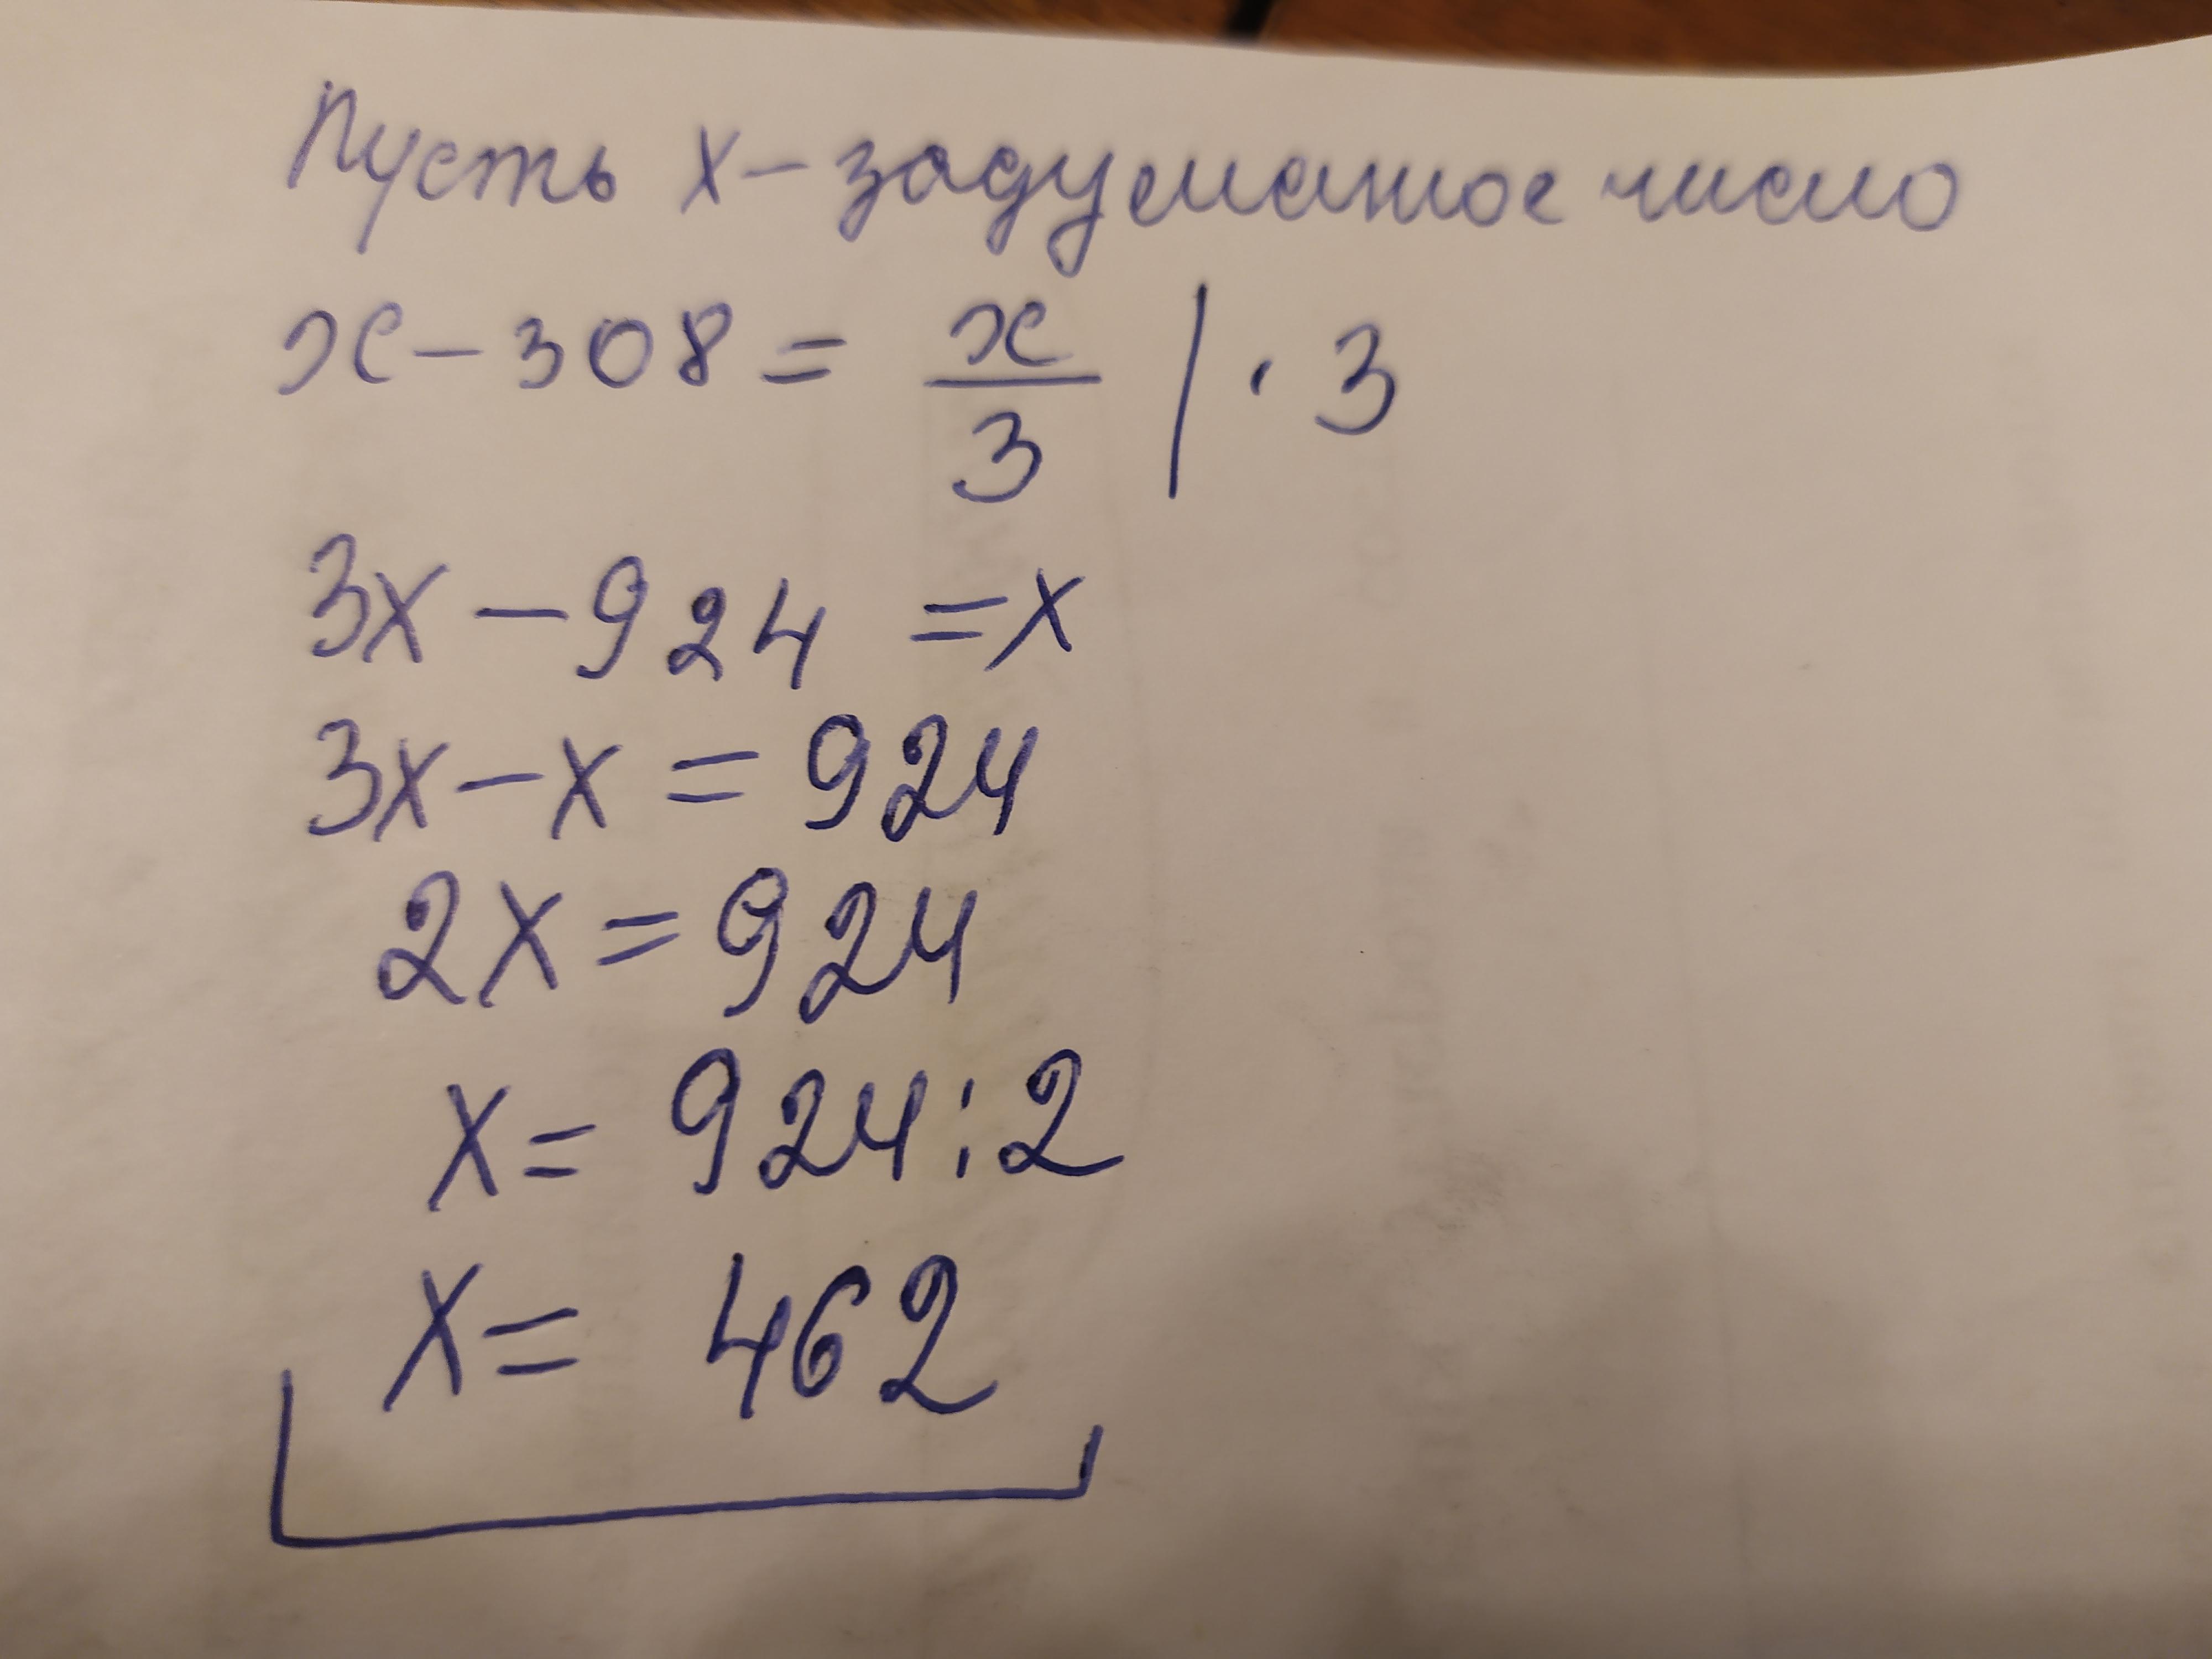 Пусть x - задуманное число
x - 308 = x/3 | · 3
3x - 924 = x
3x - x = 924
2x = 924
x = 924 : 2
x = 462